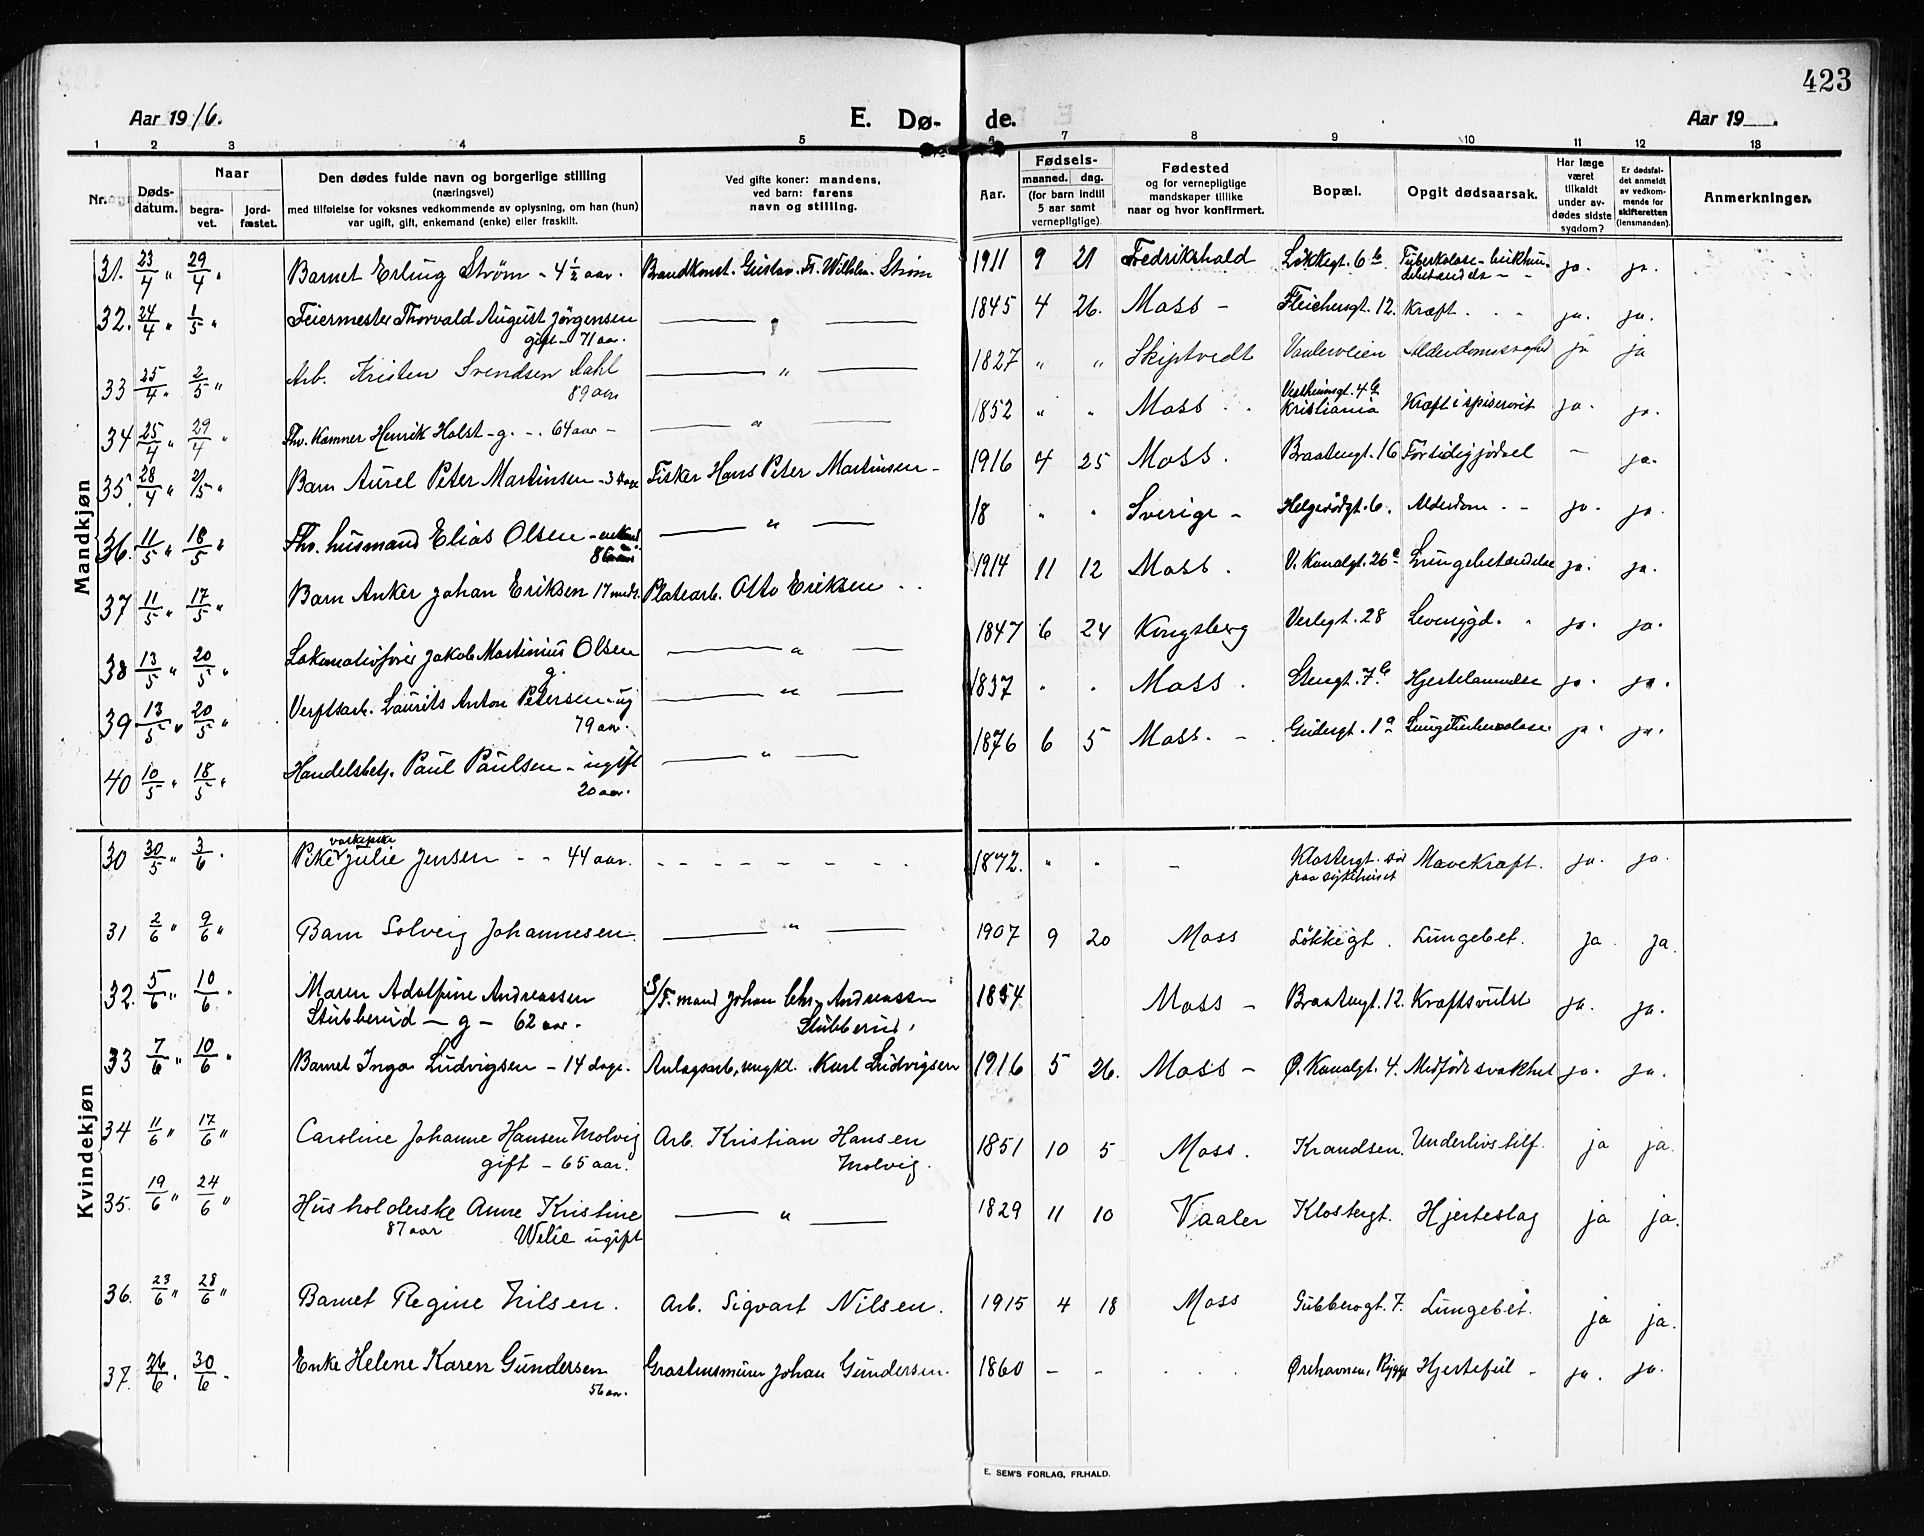 423
Aar 1916.
E. Dø-
de.
Aar 19 .
1 2 3 4 5 6 7 8 9 10 11 12 13
Nr.
Døds-
datum.
Naar
begra-
vet.
jord-
fæstet.
Den dødes fulde navn og borgerlige stilling
(næringsvei)
med tilføielse for voksnes vedkommende av oplysning, om han (hun)
var ugift, gift, enkemand (enke) eller fraskilt.
Ved gifte koner: mandens,
ved barn: farens
navn og stilling.
Aar.
Fødsels-
maaned. dag.
(for barn indtil
5 aar samt
vernepligtige)
Fødested
og for vernepligtige
mandskaper tillike
naar og hvor konfirmert.
Bopæl.
Opgit dødsaarsak.
Har læge
været
tilkaldt
under av-
dødes sidste
sygdom?
Er dødsfal-
det anmeldt
av vedkom-
mende for
skifteretten
(lensmanden).
Anmerkninger.
Mandkjøn
31. 23/4 " 29/4 " Barnet Erling Strøm - 4 1/2 aar. Brandkonst. Gustav Fr. Wilhelm Strøm 1911 9 21 Fredrikshald Løkkegt. 6 b Tuberkuløs ja. ja.
32. 24/4 " 1/5 " Feiermester Thorvald August Jörgensen — " — 1845 4 26. Moss - Fleichersgt. 12. Kræft. ja. ja.
gift - 71 aar.
33 25/4 " 2/5 " Arb. Kristen Svendsen Dahl — " — 1827 " " Skiptvedt Vaalerveien Alderdomssvaghed ja ja
89 aar
34 25/4 " 29/4 " Fhv. Kemner Henrik Holst - g. - 64 aar - — " — 1852 " " Moss Kristiania Kræft i spiserørit ja. ja.
35. 28/4 " 2/5 " Barn Aurel Peter Martinsen - 3 dage Fisker Hans Peter Martinsen - 1916 4 25 Moss. Braatengt. 16 For tidig födsel - ja.
36. 11/5 " 18/5 " Fhv. husmand Elias Olsen - enkem. — " — 18 " " Sverige - Helgerødgt. 6. Alderdom - - ja. ja.
37 11/5 " 17/5 " Barn Anker Johan Eriksen 17 mndr. Platearb. Otto Eriksen 1914 11 12 Moss. V. Kanalgt. 26 Lungebetændelse ja. ja.
38 13/5 " 20/5 " Lokomotivfører Jakob Martinius Olsen — " — 1847 6 24 Kongsberg Verlegt. 28 Leversygd. ja. ja.
g.
39 13/5 " 20/5 " Verftsarb. Laurits Anton Petersen - ug — " — 1837 " " Moss. Stengt. 7 b Hjertelammelse ja. ja.
79 aar.
40 10/5 " 18/5 " Handelsbetj. Paul Paulsen - ugift — " — 1876 6 5 Moss. - Gudesgt. 1 a Lungetuberculose. ja. ja.
20 aar.
Kvindekjøn
vaskepike
30 30/5 " 3/6 " Pike Julie Jensen - - 44 aar. - - - - - - - 1872. " " - Klostergt. Mavekræft. ja. ja.
paa sykehuset
31 2/6 " 9/6 " Barn Solveig Johannesen — " — 1907 9 20 Moss Løkkegt. Lungebet. ja. ja.
32. 5/6 " 10/6 " Maren Adolfine Andreassen S/F. mand Johan Chr. Andreassen 1854. Moss - Braatengt. 12. Kræftsvulst ja. ja.
Stubberud - g - 62 aar. Stubberud.
33 7/6 " 10/6 " Barnet Inga Ludvigsen - 14 dage. Anlægsarb., ungkl. Karl Ludvigsen 1916 5 26. Moss - Ø. Kanalgt. 4. Medfödt svakhet ja. ja.
34 11/6 " 17/6 " Caroline Johanne Hansen Molvig Arb. Kristian Hansen 1851 10 5 Moss. Krandsen. Underlivstilf. ja ja.
gift - 65 aar. Molvig.
35. 19/6 " 24/6 " Husholderske Anne Kristine — " — 1829 11 10 Vaaler Klostergt. Hjerteslag ja ja.
87 aar Wike ugift
36. 23/6 " 28/6 " Barnet Regine Nilsen. Arb. Sigvart Nilsen. 1915 4 18 Moss Gubberogt. 7. Lungebet. ja ja.
37. 26/6 " 30/6 - Enke Helene Karen Gundersen Johan Gundersen. 1860 - - . . . Ørehavnen, Rygge Hjertefeil - ja. ja.
56 aar.
E. SEM'S FORLAG, FR.HALD.